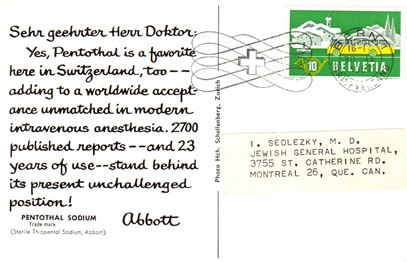 Sehr geehrter Herr Doktor:
Yes, Pentothal is a favorite
here in Switzerland, too --
adding to a worldwide accept-
ance unmatched in modern
intravenous anesthesia. 2700
published reports -- and 23
years of use -- stand behind
its present unchallenged
position!
PENTOTHAL SODIUM
Trade mark
(Sterile Thiopental Sodium, Abbott)
Abbott
Photo Hch. Schellenberg, Zurich
BERN 1
10
HELVETIA
I. SEDLEZKY, M. D.
JEWISH GENERAL HOSPITAL,
3755 ST. CATHERINE RD.
MONTREAL 26, QUE. CAN.